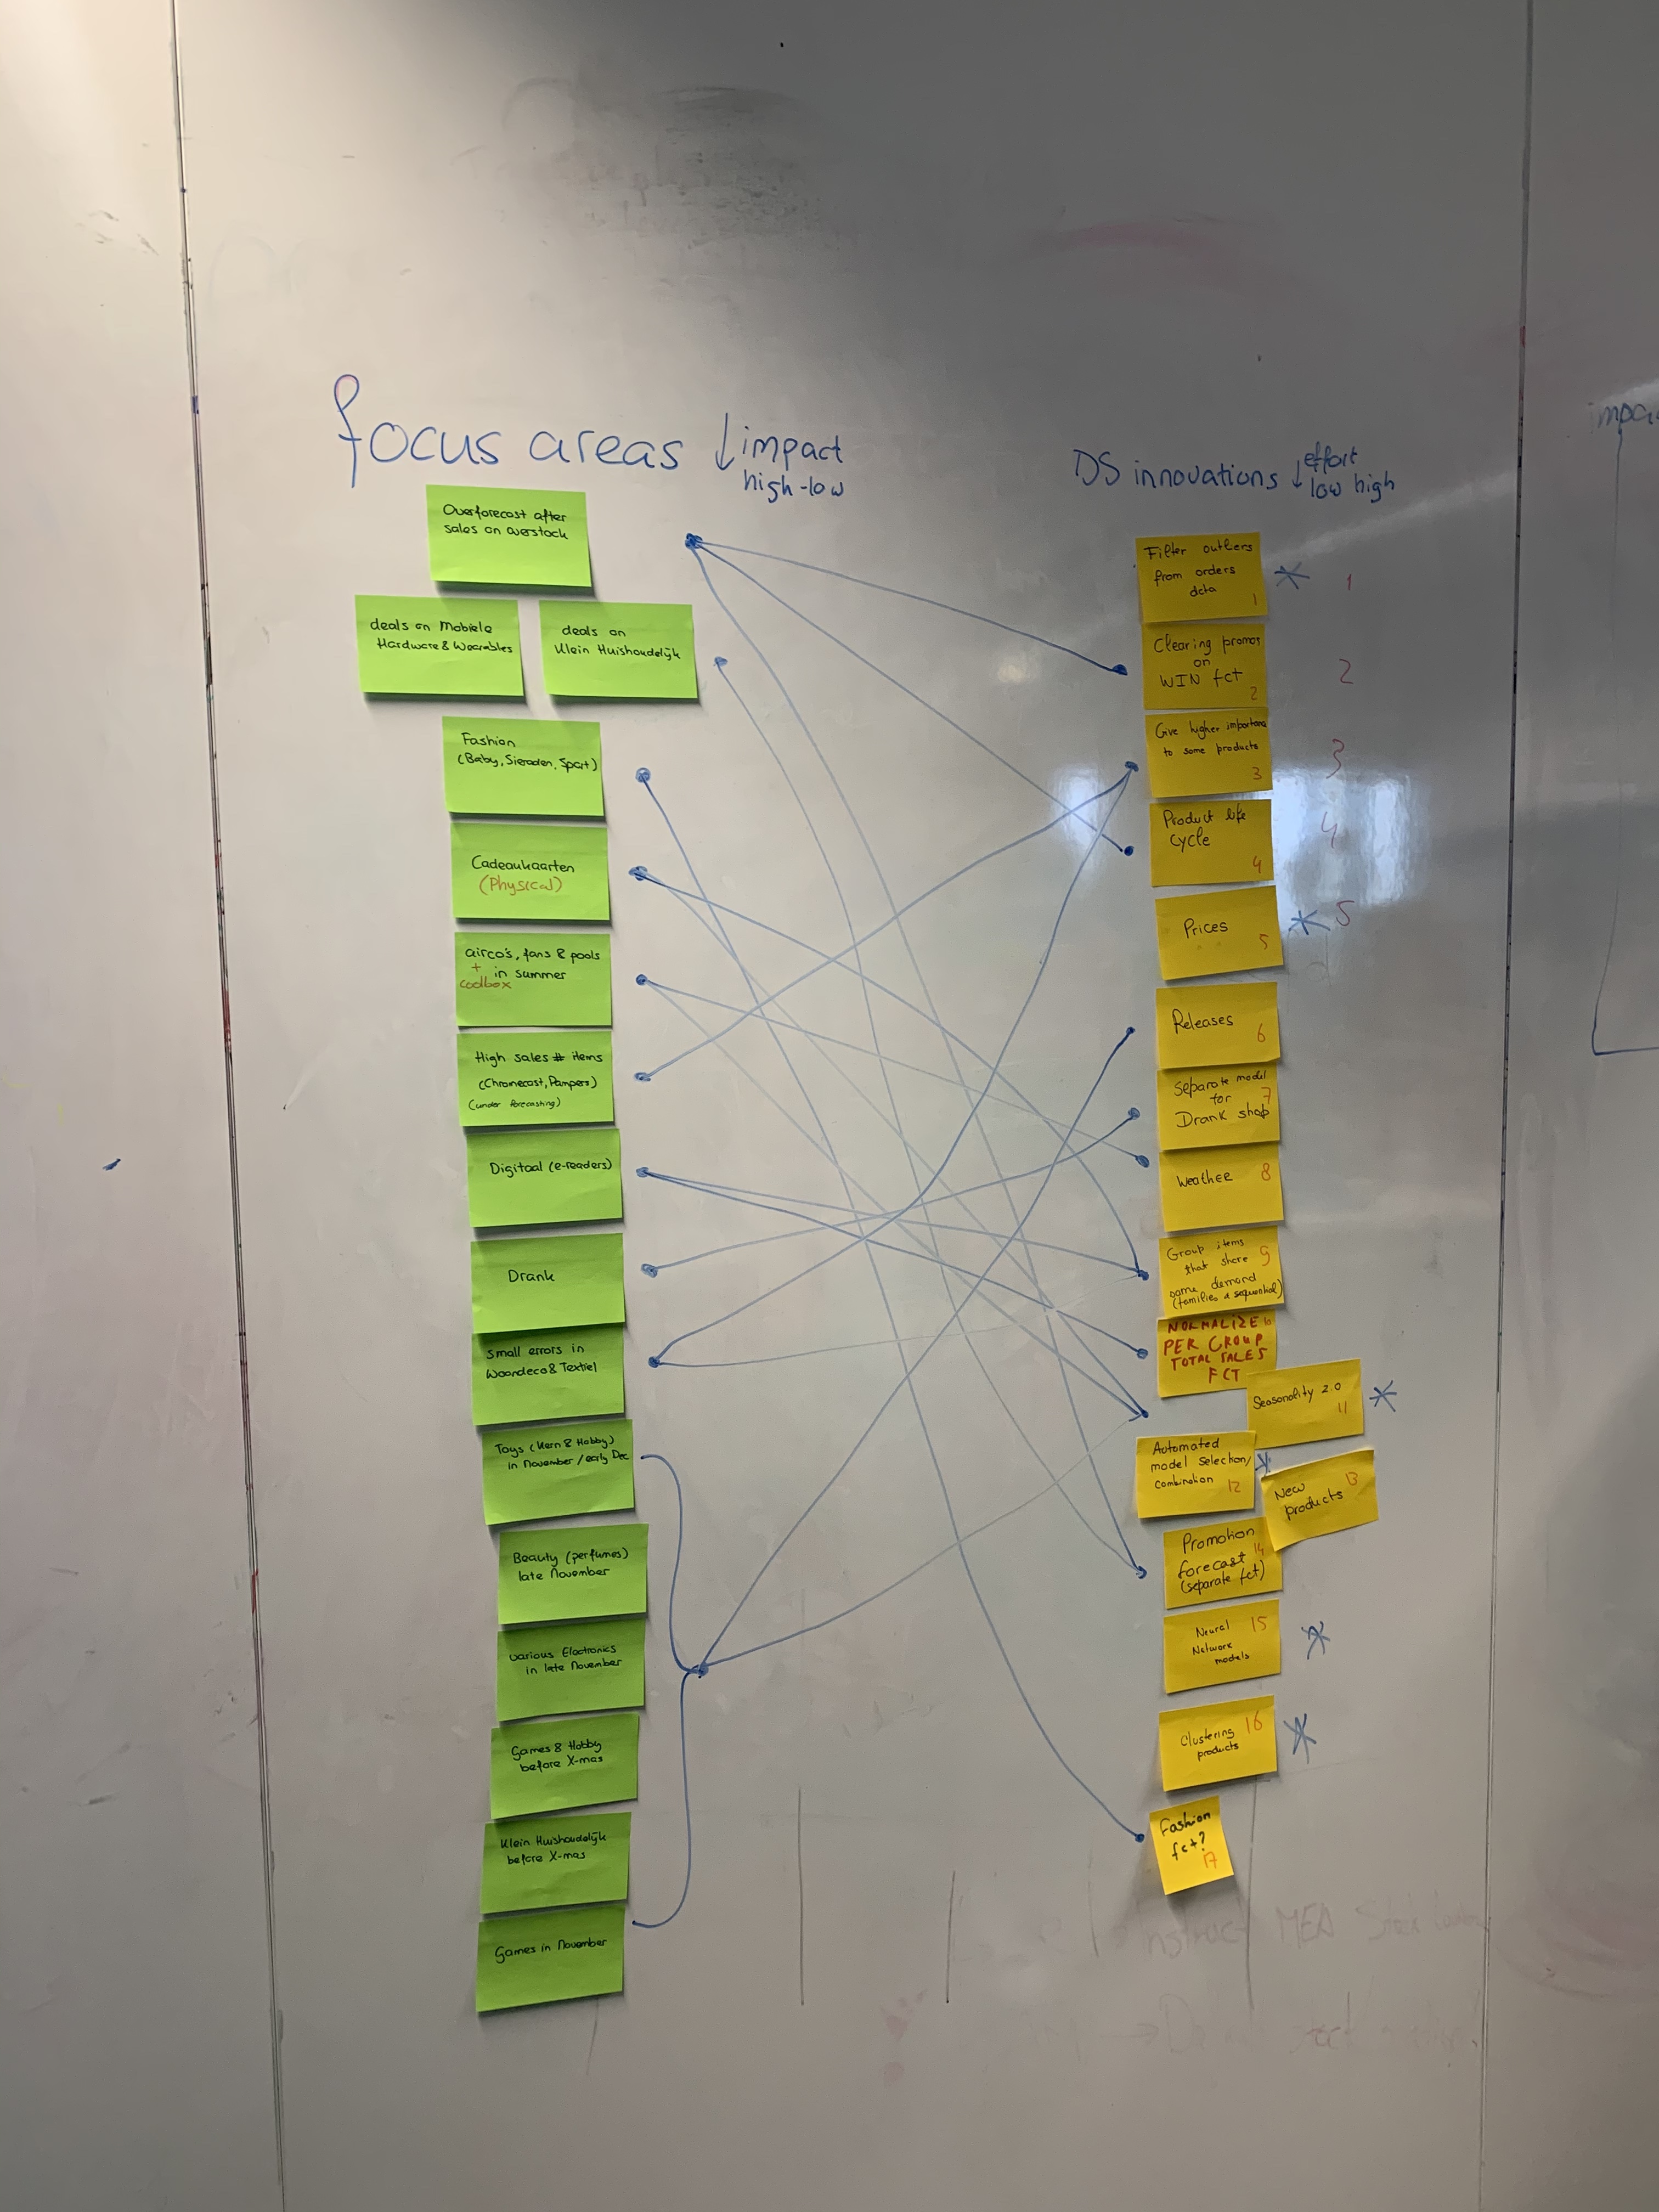 focus areas ↓ impact
high-low
Overforecast after
sales on overstock
deals on Mobiele
Hardware & Wearables
deals on
Klein Huishoudelijk
Fashion
(Baby, Sieraden, Sport)
Cadeaukaarten
(Physical)
airco's, fans & pools
+ in summer
coolbox
High sales # items
(Chromecast, Pampers)
(under forecasting)
Digitaal (e-readers)
Drank
Small errors in
Woondeco & Textiel
Toys (Kern & Hobby)
in November / early Dec
Beauty (perfumes)
late November
various Electronics
in late November
Games & Hobby
before X-mas
Klein Huishoudelijk
before X-mas
Games in November
DS innovations ↓ effort
low high
Filter outliers
from orders
data
1
* 1
Clearing promos
on
WIN fct
2
2
Give higher importance
to some products
3
3
Product life
cycle
4
4
Prices
5
* 5
Releases
6
Separate model
for 7
Drank shop
Weather 8
Group items 9
that share
same demand
(families & sequential)
NORMALIZE 10
PER GROUP
TOTAL SALES
FCT
Seasonality 2.0
11
*
Automated
model selection/
combination 12
*
New 13
products
Promotion
forecast 14
(separate fct)
Neural 15
Network
models
*
Clustering 16
products
*
Fashion
fct?
17
MEA
impac